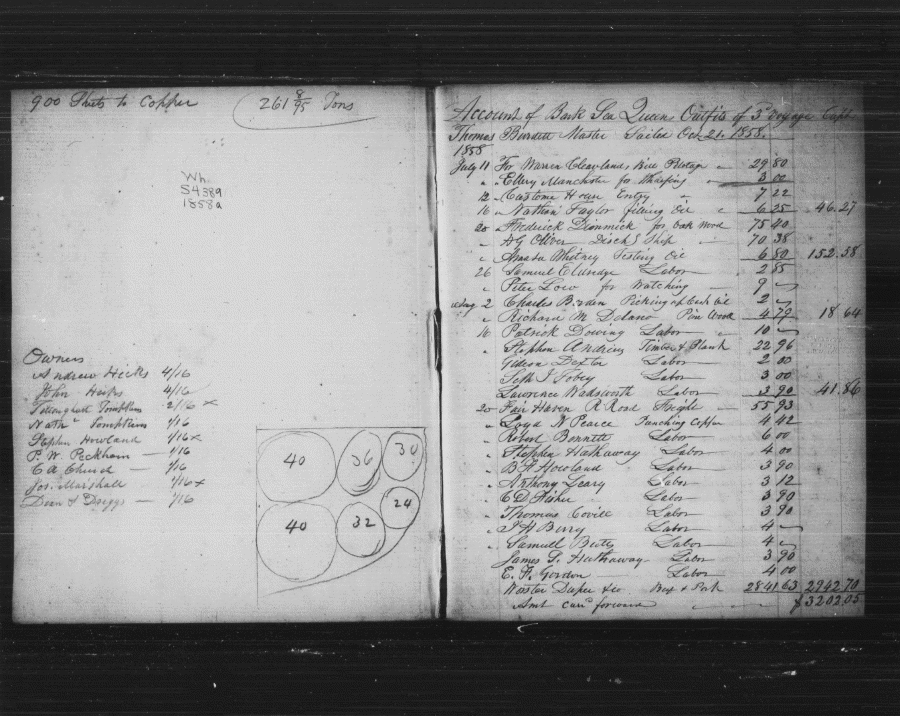 900 Shets to Copper
261 8/95 Tons
Wh.
S4389
1858a
Owners
Andrew Hicks 4/16
John Hicks 4/16
Tillinghast Tompkins 2/16 x
Nathl Tompkins 1/16
Stephen Howland 1/16 x
P. W. Peckham — 1/16
C A Church — 1/16
Jos. Marshall 1/16 x
Dean & Driggs — 1/16
40 36 30
40 32 24
Account of Bark Sea Queen Outfits of 3d Voyage Capt
Thomas Burdett Master Sailed Oct. 21. 1858.
1858
July 11 For Warren Cleavlands Bill Pilotage 29 80
" " Ellery Manchester for Wharfing 3 00
12 " Custome House Entry 7 22
16 " Nathan Taylor filling Oil 6 25 46.27
20 Frederick Dimmick for Oak Wood 75 40
" A G Oliver Disch'g Ship 70 38
" Amasa Whitney Testing Oil 6 80 152.58
26 Samuel Eldredge Labor 2 85
" Peter Low for Watching 9 "
Aug 2 Charles Borden Picking up Cask Oil 2 "
" Richard M Delano Pine Wood 4 79 18 64
16 Patrick Dowing Labor 10 "
" Stephen Andrews Timber & Plank 22 96
Gideon Dexter Labor 2 00
Seth J Tobey Labor 3 00
Lawrence Wadsworth Labor 3 90 41.86
20 Fair Haven R Road Freight 55 93
" Loyd N Pearce Punching Copper 4 42
" Robert Bennett Labor 6 00
" Stephen Hathaway Labor 4 00
" B F Howland Labor 3 90
" Anthony Leary Labor 3 12
" C D Fisher Labor 3 90
" Thomas Covill Labor 3 90
" J H Berry Labor 4 "
" Samuell Labor 4 "
" James S. Hathaway Labor 3 90
" E. F. Gordon Labor 4 00
Draper & co Beef & Pork 2841.63 2942 70
Amt carrd forward $3202.05